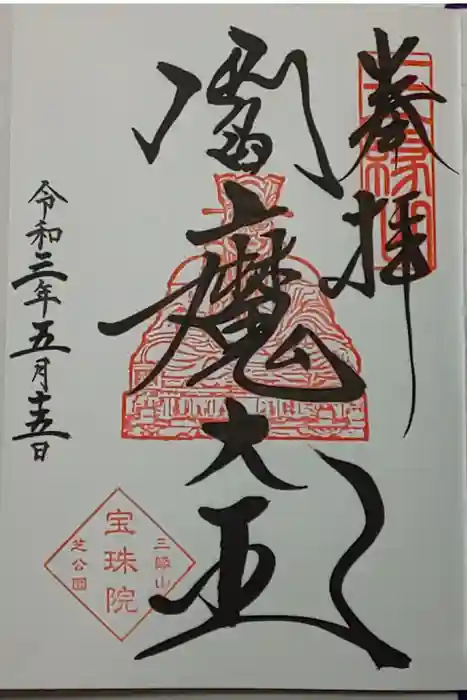 奉拝
閻魔大王
令和三年五月十五日
三縁山
宝珠院
芝公園